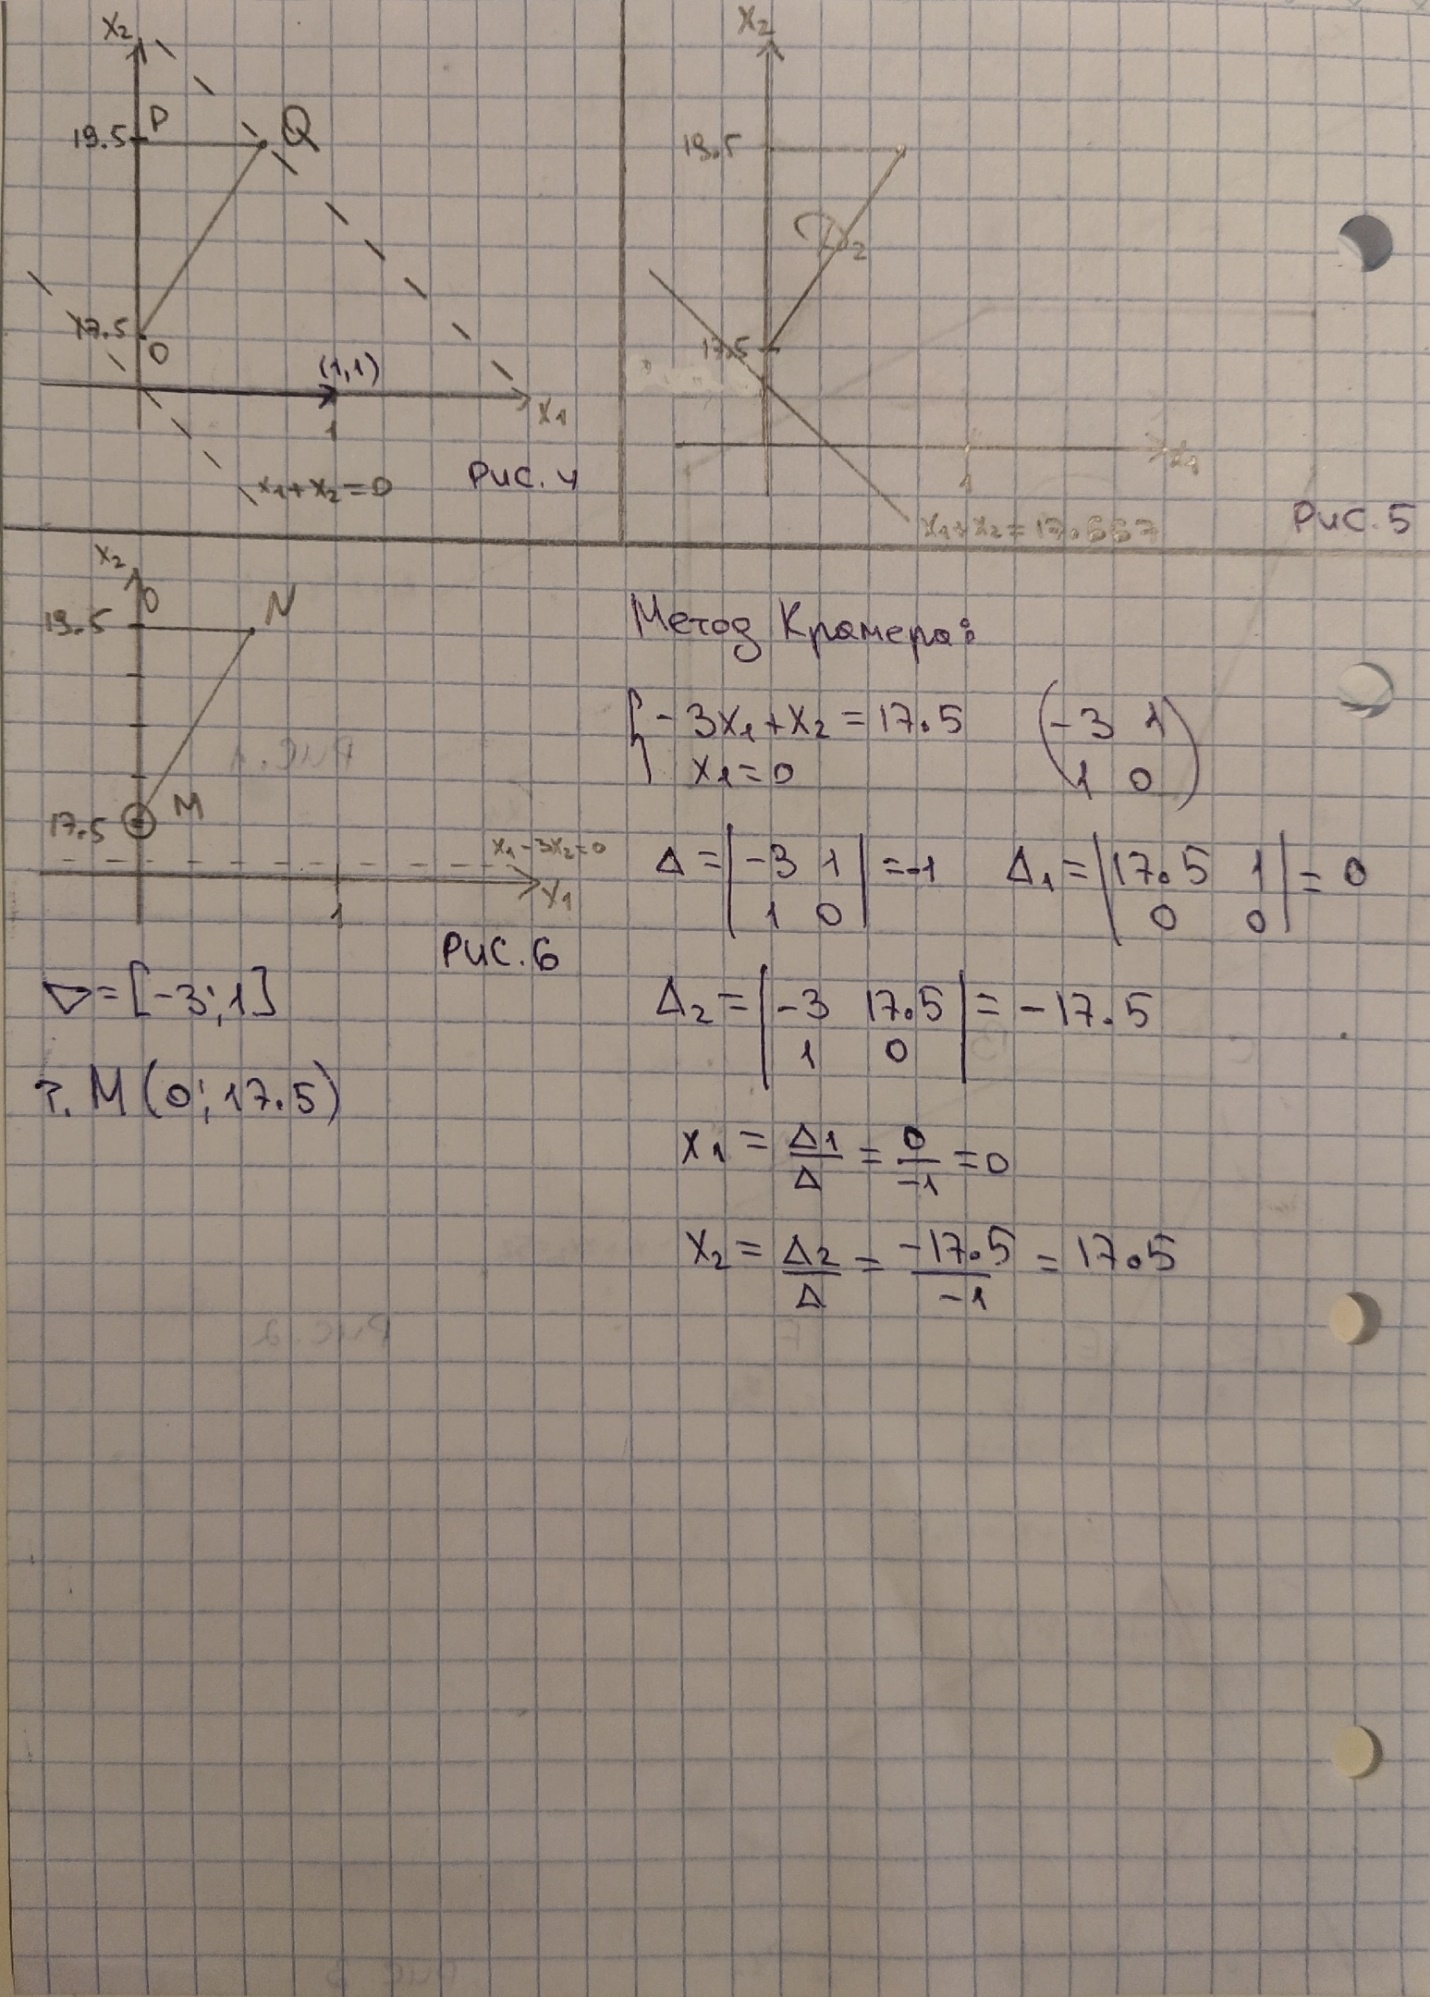 x₂
19.5
P
Q
17.5
0
(1,1)
1
x₁
x₁+x₂=0
Рис. 4
x₂
19.5
D₂
17.5
1
x₁
x₁+x₂=17.667
Рис. 5
x₂
19.5
0
N
17.5
M
x₁-3x₂=0
1
x₁
Рис. 6
▽=[-3;1]
т. M(0;17.5)
Метод Крамера:
{-3x₁+x₂=17.5 (-3 1
x₁=0 1 0)
Δ=|-3 1|=-1 Δ₁=|17.5 1|=0
1 0 0 0
Δ₂=|-3 17.5|=-17.5
1 0
x₁=Δ1/Δ=0/-1=0
x₂=Δ2/Δ=-17.5/-1=17.5